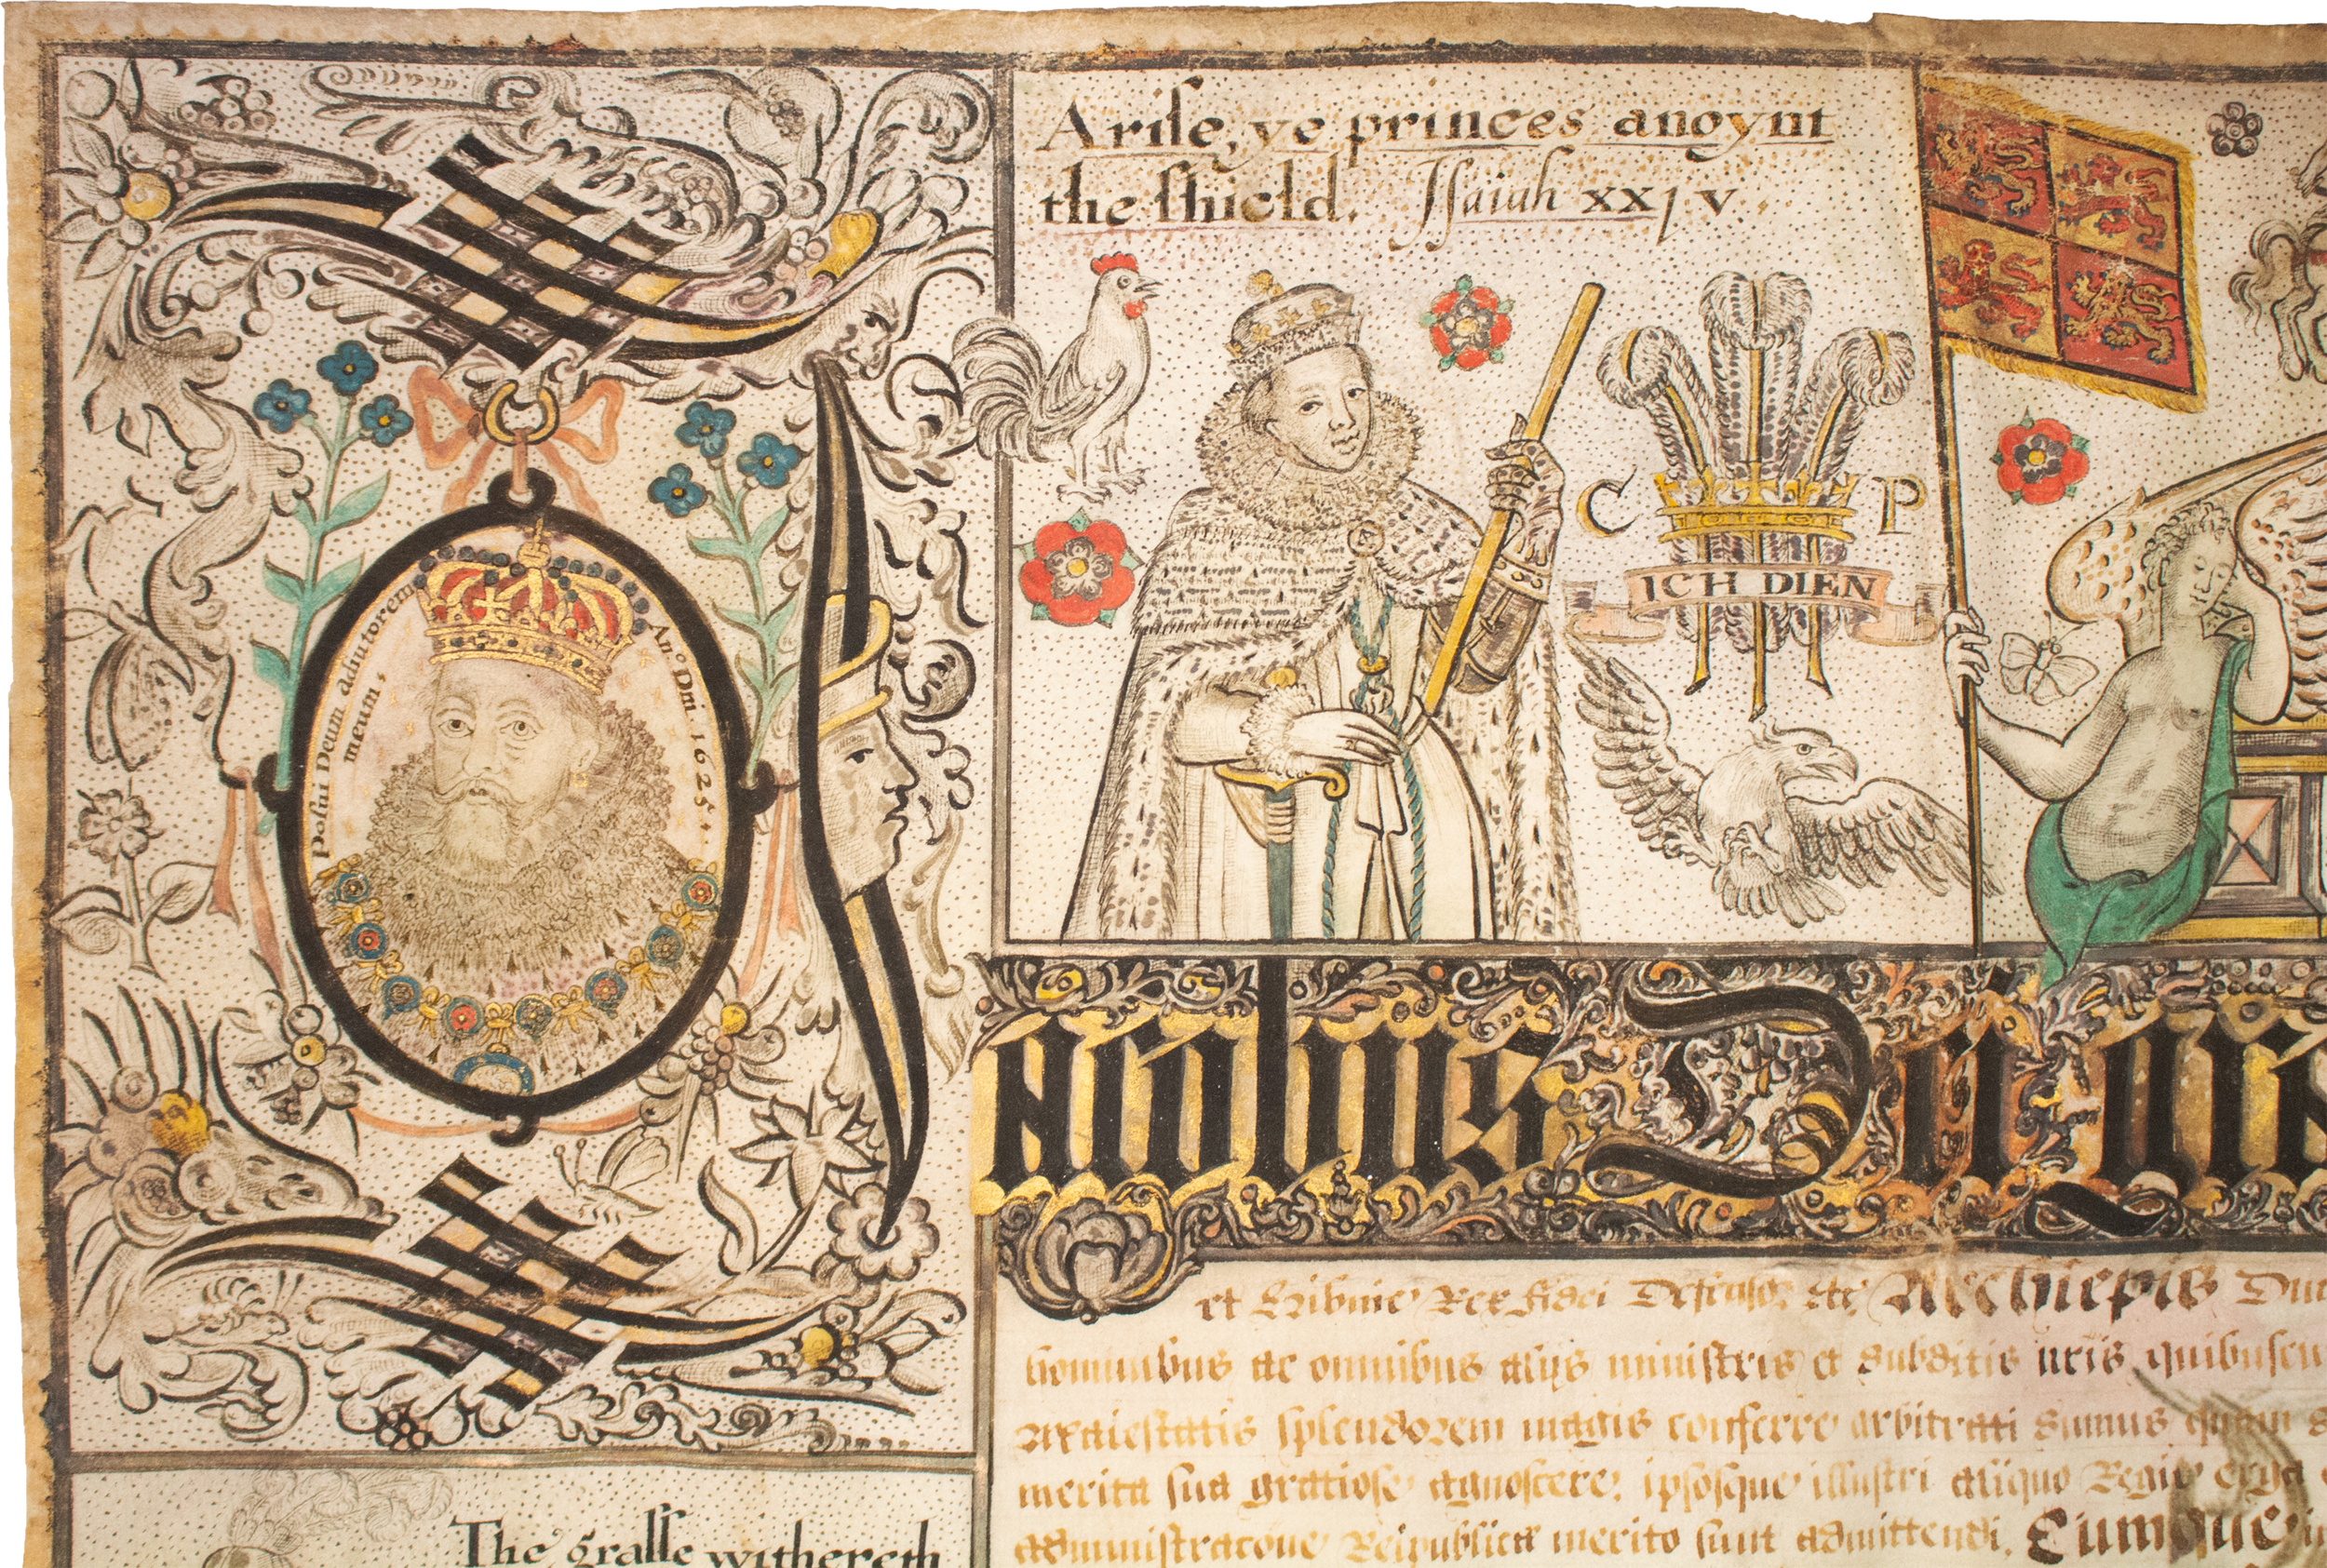 Arise, ye princes anoynt
the shield. Isaiah xxjv.
C P
ICH DIEN
Posui Deum adiutorem
meum,
An.º Dni 1625.
Jacobus Dei gra
et Hibnie Rex fidei Defensor etc Archiepis Duc
hominibus ac omnibus alijs ministris et subditis nris quibuscu
Maiestatis splendorem magis conferre arbitrati sumus quam
merita sua gratiose agnoscere, ipsosque illustri aliquo Regie erga
administracone Reipublice merito sunt admittendi. Cumque
The grasse withereth